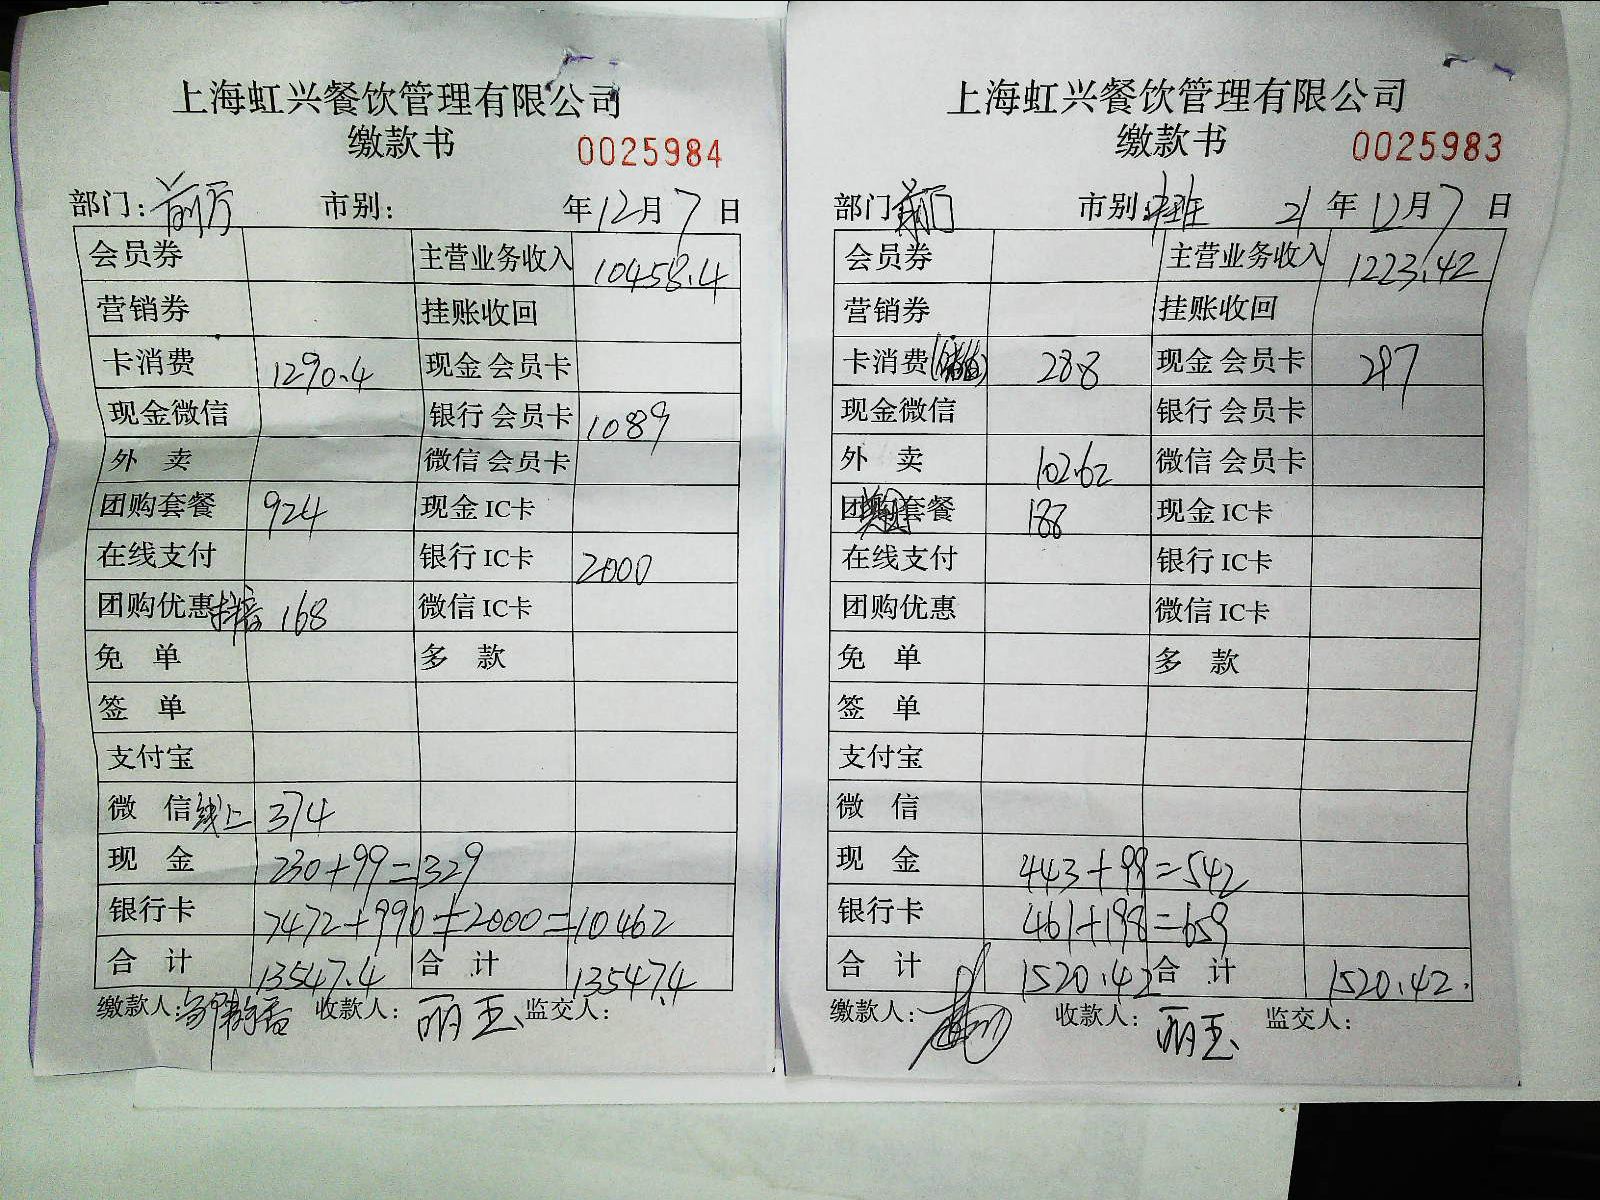 上海虹兴餐饮管理有限公司
缴款书 0025984
部门: 前厅 市别: 年12月7日
会员券 主营业务收入 10458.4
营销券 挂账收回
卡消费 1290.4 现金会员卡
现金微信 银行会员卡 1089
外 卖 微信会员卡
团购套餐 924 现金IC卡
在线支付 银行IC卡 2000
团购优惠抖音 168 微信IC卡
免 单 多 款
签 单
支付宝
微 信线上 374
现 金 230+99=329
银行卡 7472+990+2000=10462
合 计 13547.4 合 计 13547.4
缴款人: 收款人: 丽玉 监交人:
上海虹兴餐饮管理有限公司
缴款书 0025983
部门 前厅 市别: 班 21年12月7日
会员券 主营业务收入 1223.42
营销券 挂账收回
卡消费 288 现金会员卡 297
现金微信 银行会员卡
外 卖 102.62 微信会员卡
团购套餐 188 现金IC卡
在线支付 银行IC卡
团购优惠 微信IC卡
免 单 多 款
签 单
支付宝
微 信
现 金 443+99=542
银行卡 461+198=659
合 计 1520.42 合 计 1520.42.
缴款人: 收款人: 丽玉 监交人: